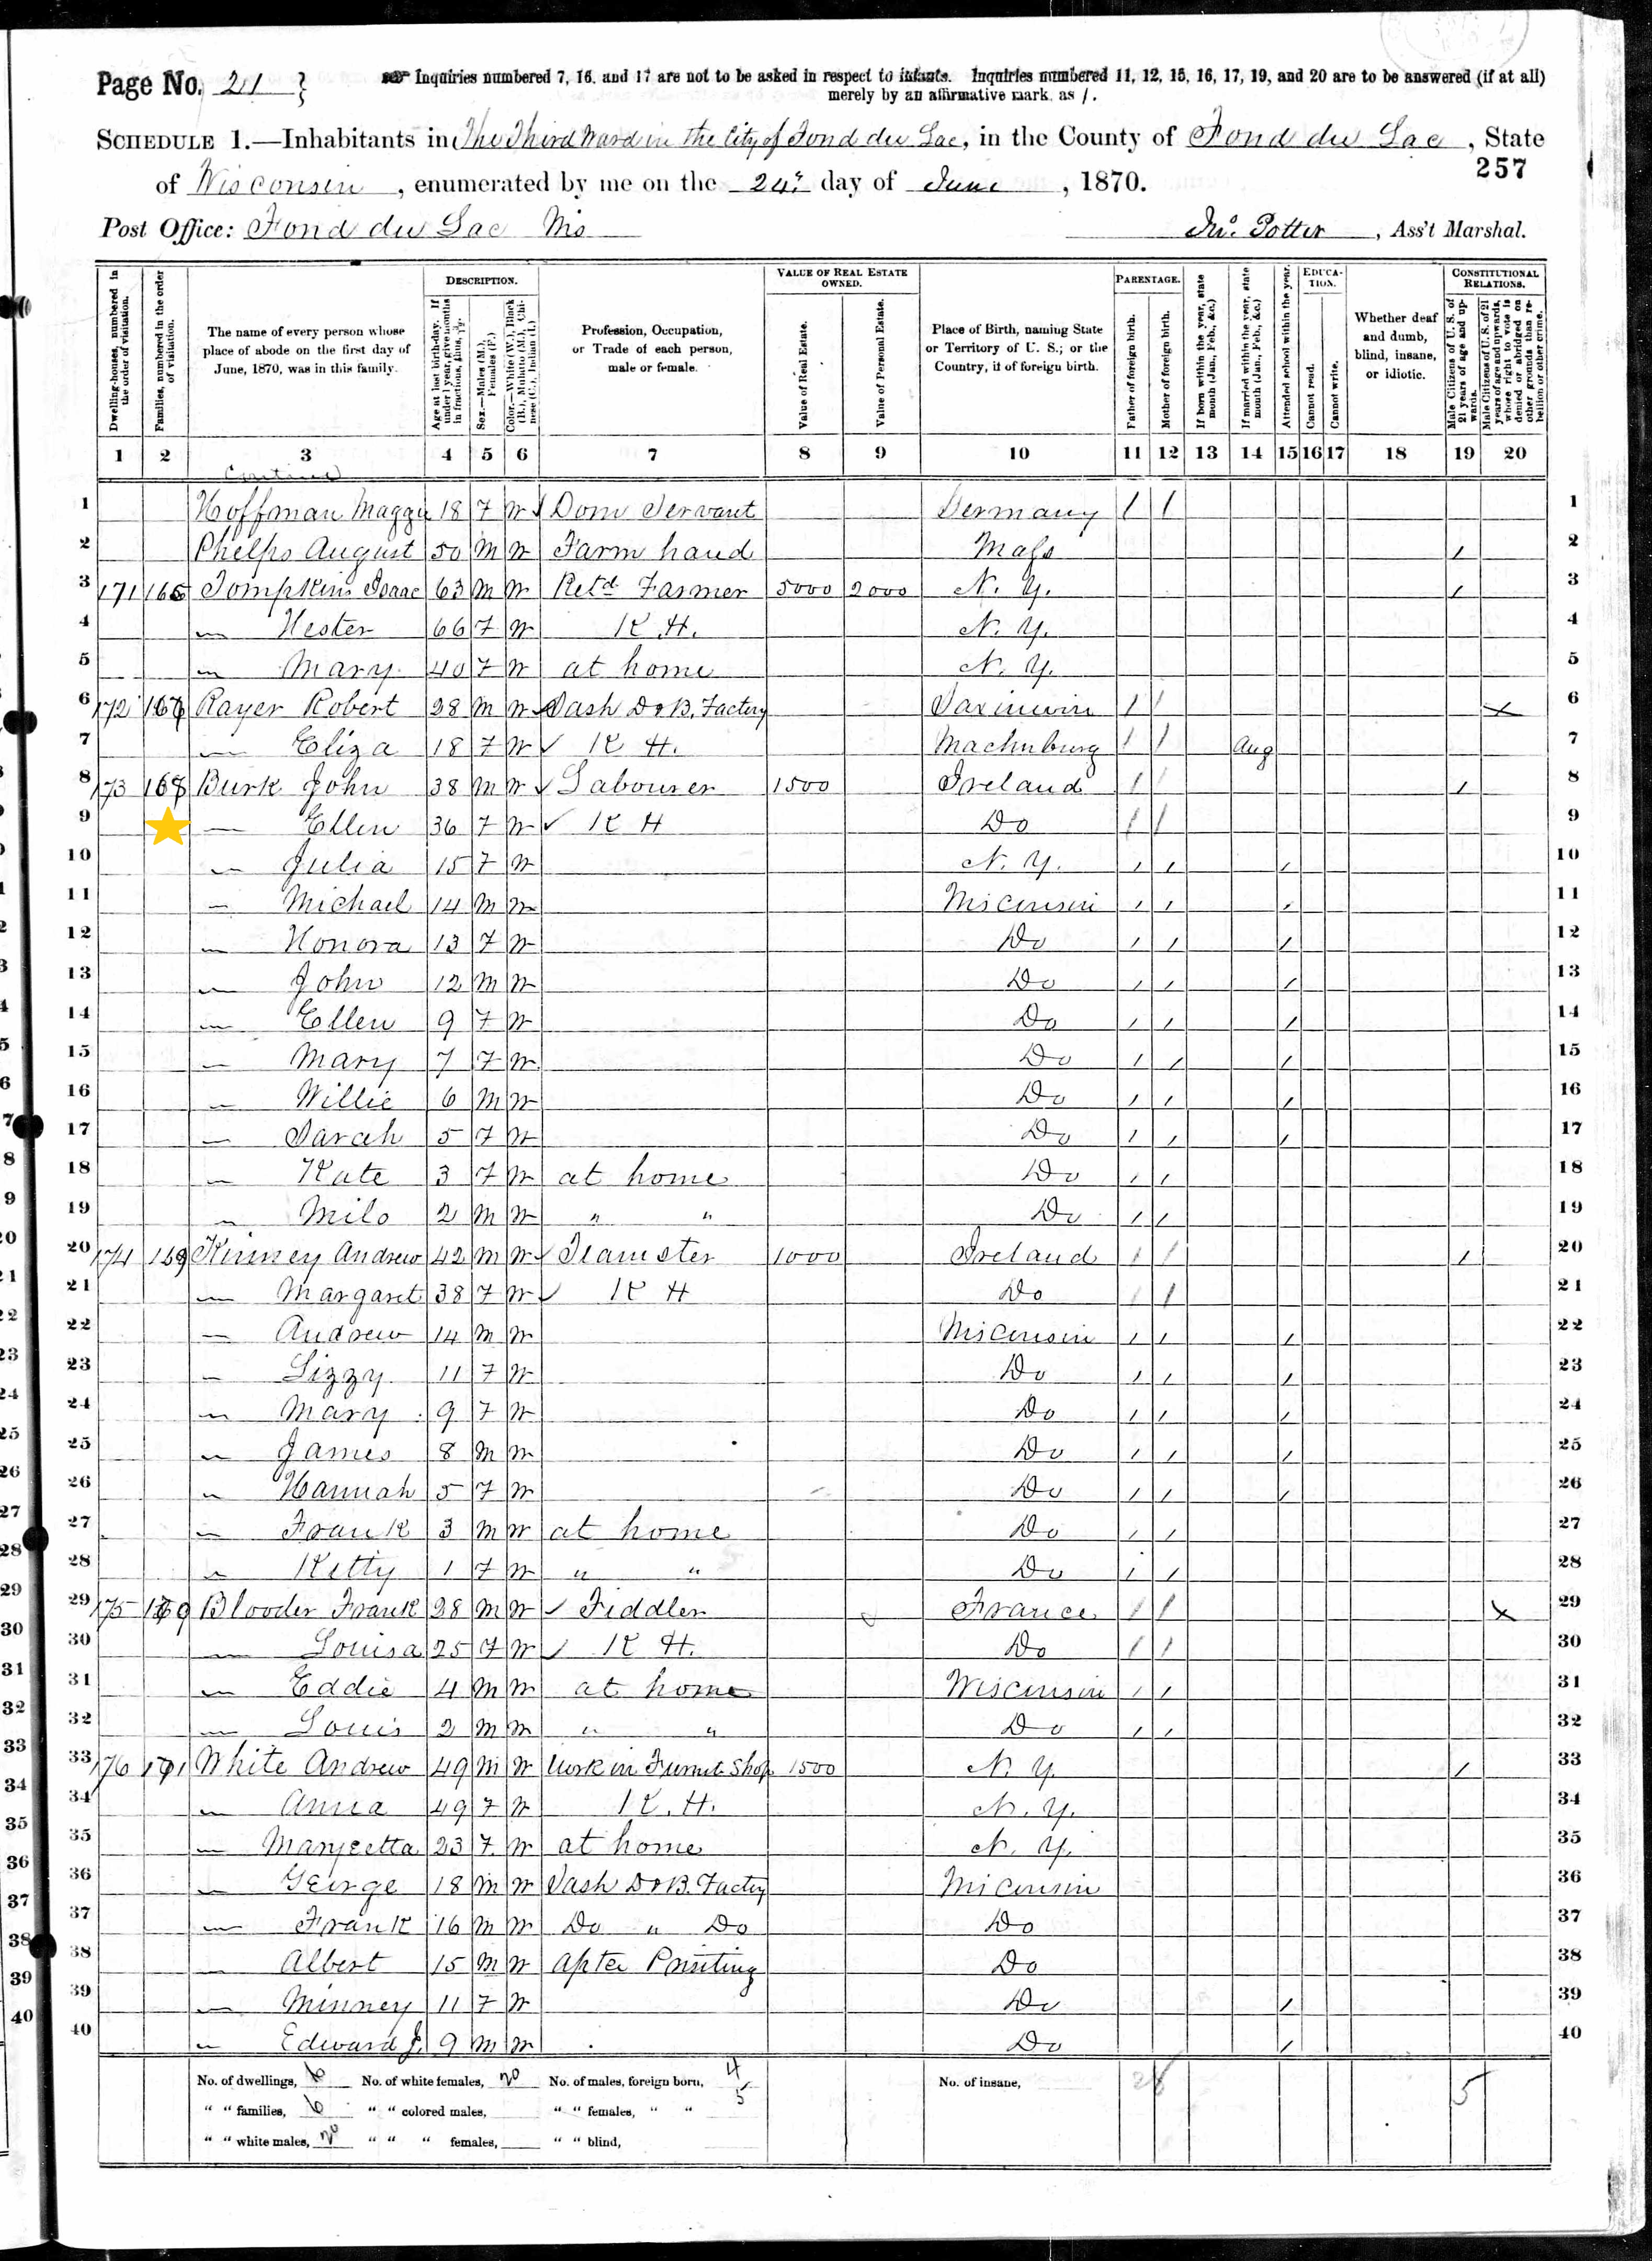 Page No. 21 }
Inquiries numbered 7, 16, and 17 are not to be asked in respect to infants. Inquiries numbered 11, 12, 15, 16, 17, 19, and 20 are to be answered (if at all)
merely by an affirmative mark, as /.
SCHEDULE 1.—Inhabitants in The Third Ward in the City of Fond du Lac, in the County of Fond du Lac, State
257
of Wisconsin, enumerated by me on the 24 day of June, 1870.
Post Office: Fond du Lac Wis
Jno. Potter, Ass't Marshal.
Dwelling-houses, numbered in the order of visitation.
Families, numbered in the order of visitation.
The name of every person whose place of abode on the first day of June, 1870, was in this family.
DESCRIPTION.
Age at last birth-day. If under 1 year, give months in fractions, thus,
Sex.—Males (M.), Females (F.)
Color.—White (W.), Black (B.), Mulatto (M.), Chinese (C.), Indian (I.)
Profession, Occupation, or Trade of each person, male or female.
VALUE OF REAL ESTATE OWNED.
Value of Real Estate.
Value of Personal Estate.
Place of Birth, naming State or Territory of U. S.; or the Country, if of foreign birth.
PARENTAGE.
Father of foreign birth.
Mother of foreign birth.
If born within the year, state month (Jan., Feb., &c.)
If married within the year, state month (Jan., Feb., &c.)
EDUCATION.
Attended school within the year.
Cannot read.
Cannot write.
Whether deaf and dumb, blind, insane, or idiotic.
CONSTITUTIONAL RELATIONS.
Male Citizens of U. S. of 21 years of age and upwards.
Male Citizens of U. S. of 21 years of age and upwards, whose right to vote is denied or abridged on other grounds than rebellion or other crime.
1 2 3 4 5 6 7 8 9 10 11 12 13 14 15 16 17 18 19 20
1 Hoffman Maggie 18 F W Dom Servant Germany / / 1
2 Phelps August 50 M W Farm hand Mass / 2
3 171 Tompkins Isaac 63 M W Retd Farmer 5000 2000 N. Y. / 3
4 " Hester 66 F W K. H. N. Y. 4
5 " Mary 40 F W at home N. Y. 5
6 172 Rayer Robert 28 M W Sash D & B. Factory / / x 6
7 " Eliza 18 F W K H. / / Aug 7
8 173 Burk John 38 M W Labourer 1500 Ireland / / / 8
9 — Ellen 36 F W K H Do / / 9
10 " Julia 15 F W N. Y. / / / 10
11 " Michael 14 M W Wisconsin / / / 11
12 " Honora 13 F W Do / / / 12
13 " John 12 M W Do / / / 13
14 " Ellen 9 F W Do / / / 14
15 " Mary 7 F W Do / / / 15
16 " Willie 6 M W Do / / / 16
17 " Sarah 5 F W Do / / / 17
18 " Kate 3 F W at home Do / / 18
19 " Milo 2 M W " " Do / / 19
20 174 Kinney Andrew 42 M W Teamster 1000 Ireland / / / 20
21 " Margaret 38 F W K H Do / / 21
22 " Andrew 14 M W Wisconsin / / / 22
23 " Lizzy 11 F W Do / / / 23
24 " Mary 9 F W Do / / / 24
25 " James 8 M W Do / / / 25
26 " Hannah 5 F W Do / / / 26
27 " Frank 3 M W at home Do / / 27
28 " Kitty 1 F W " " Do / / 28
29 175 Blooder Frank 28 M W Fiddler France / / x 29
30 " Louisa 25 F W K H. Do / / 30
31 " Eddie 4 M W at home Wisconsin / / 31
32 " Louis 2 M W " " Do / / 32
33 176 White Andrew 49 M W Work in Furnit. Shop 1500 N. Y. / 33
34 " Anna 49 F W K. H. N. Y. 34
35 " Maryetta 23 F W at home N. Y. 35
36 " George 18 M W Sash D & B. Facty Wisconsin 36
37 " Frank 16 M W Do " Do Do 37
38 " Albert 15 M W Apter Printing Do 38
39 " Minney 11 F W Do / 39
40 " Edward J. 9 M W Do / 40
No. of dwellings, 6 No. of white females, 20 No. of males, foreign born, 4 No. of insane, 28 5
" " families, 6 " " colored males, " " females, " " 5
" " white males, 20 " " " females, " " blind,